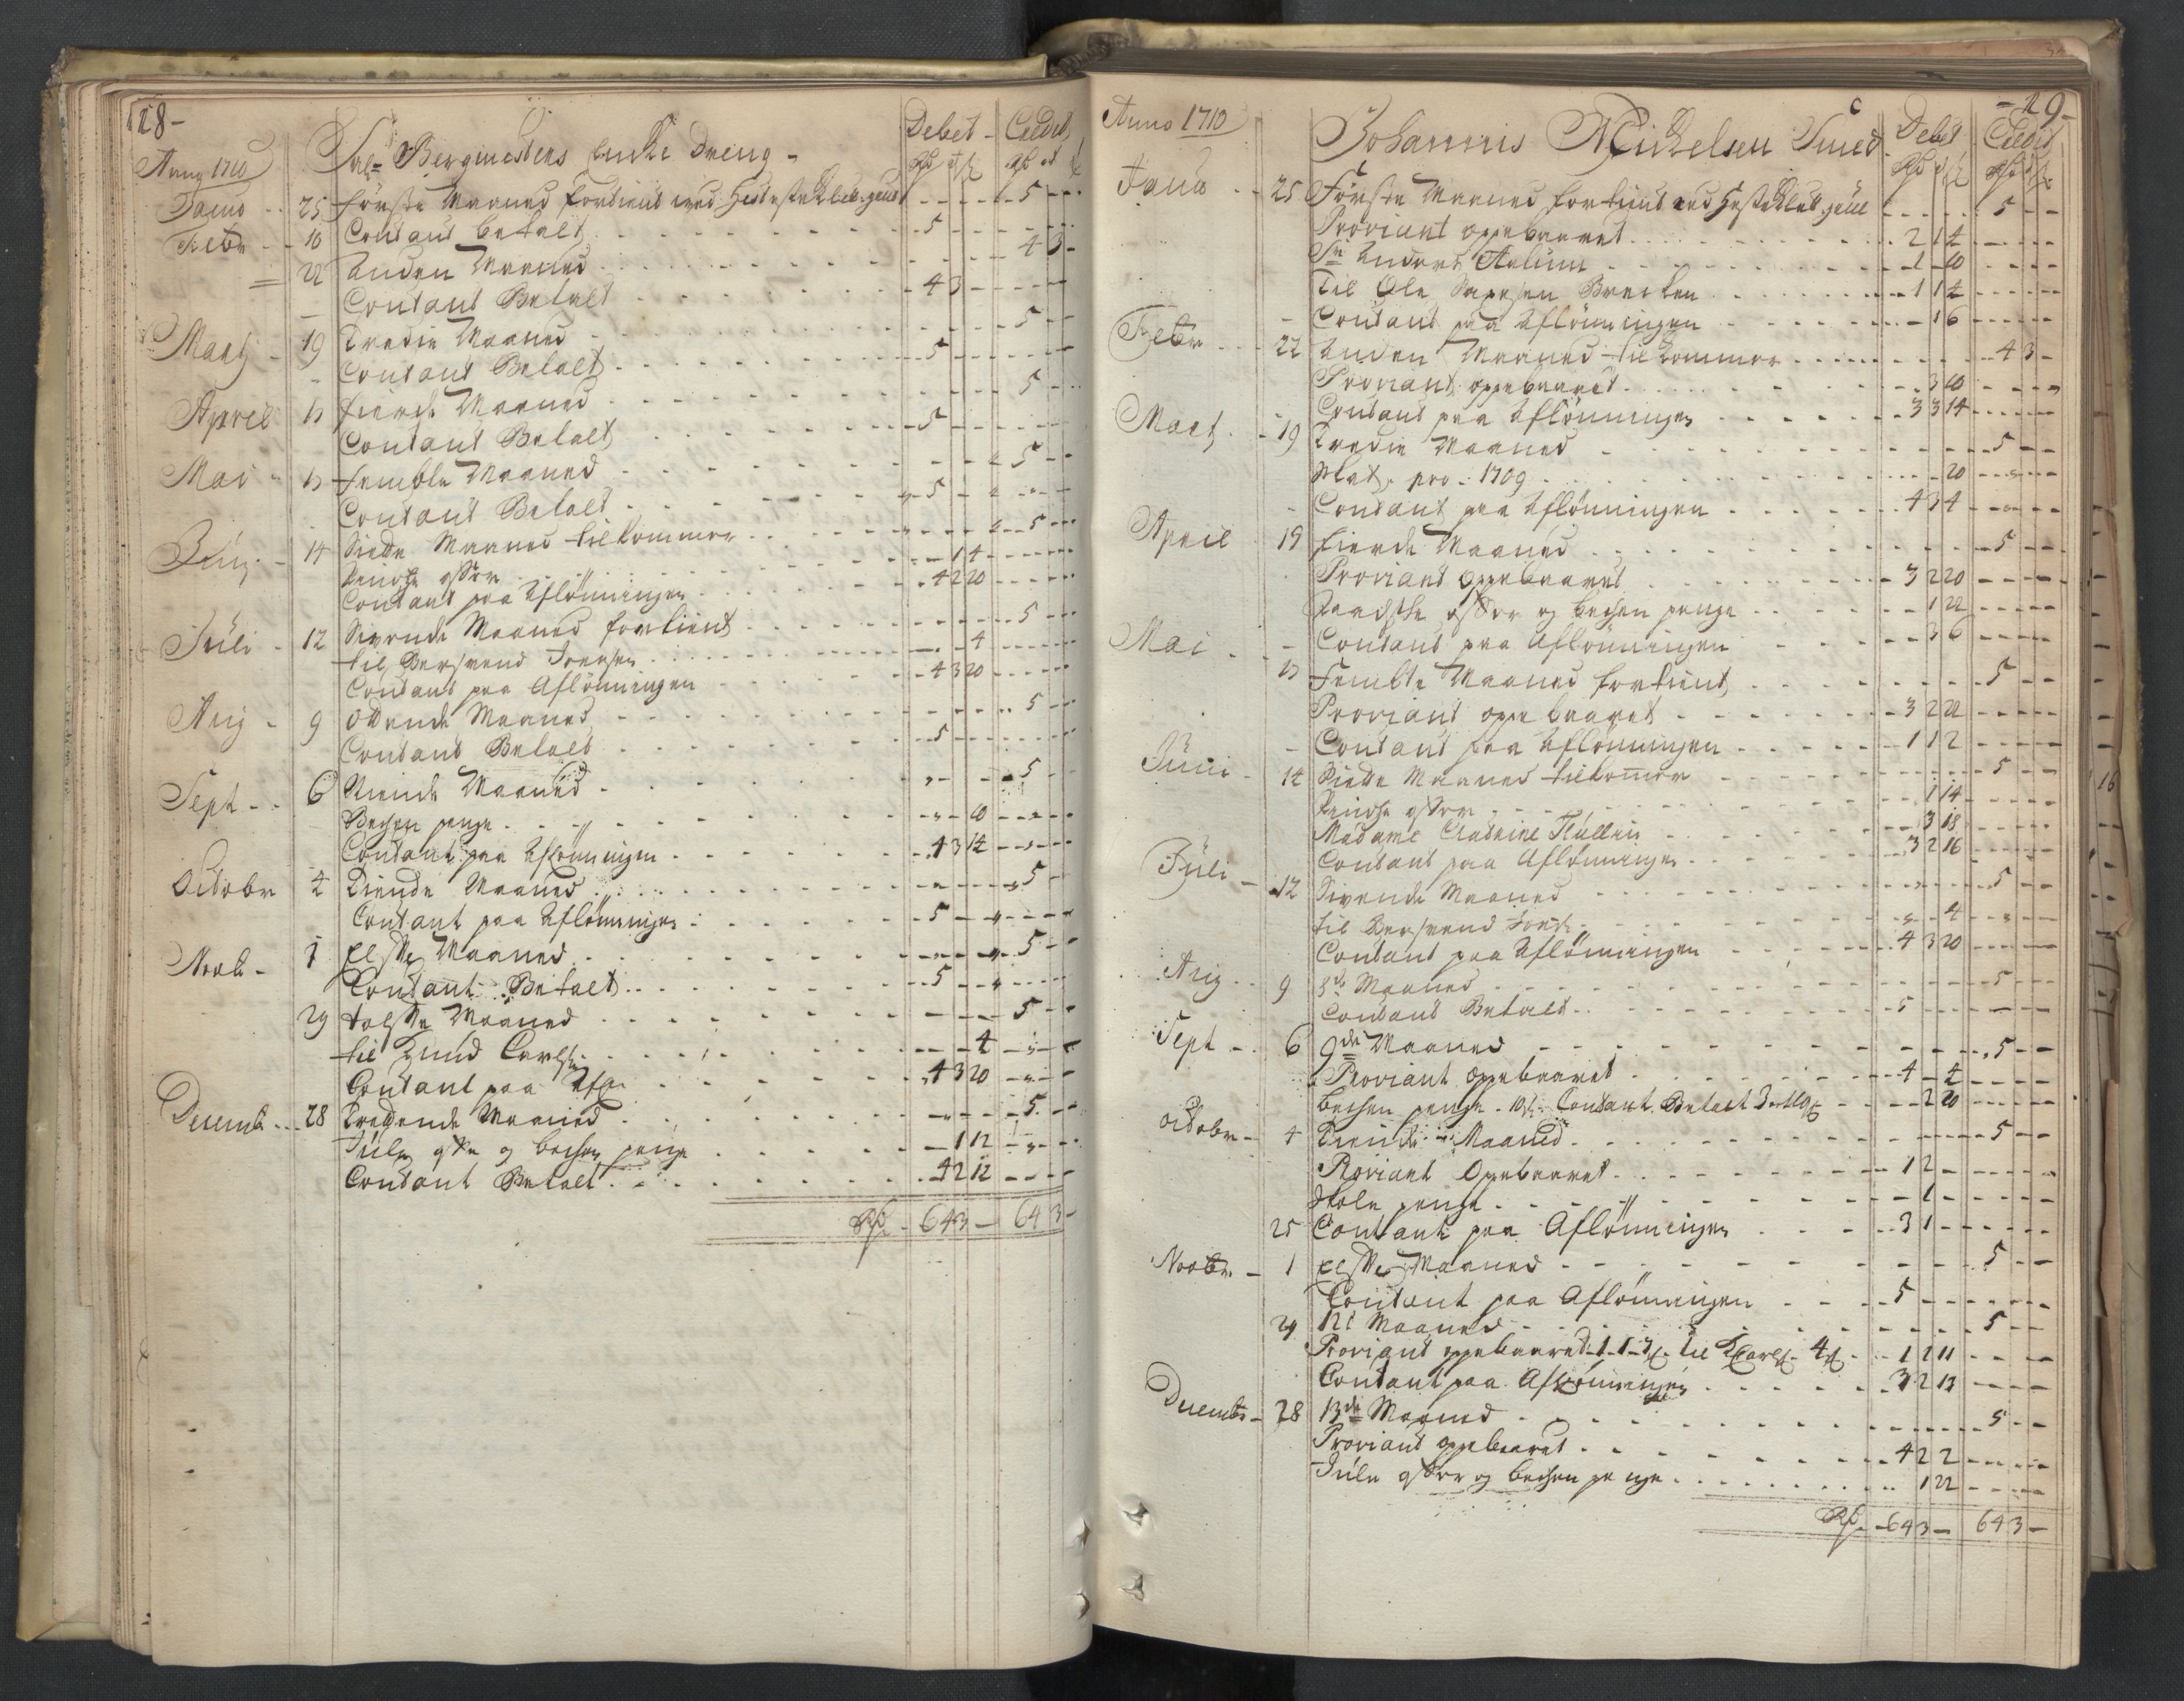 28-
Debet - Credit
Anno 1710 Sal= Bergmesters Encke Dreng -
Rd ort s Rd ort s
Janu 25 första Maaned fortient med Hest - - 5 - -
Febr - 10 Contant betalt - 5 - -
22 Anden Maaned - 4 3 -
Contant Betalt - 4 3 -
Marty - 19 Tredie Maaned - 5 - -
Contant Betalt - 5 - -
April fierde Maaned - 5 - -
Contant Betalt - 5 - -
Mai - femble Maaned - 5 - -
Contant Betalt - 5 - -
Juny - 14 Siette Maaned tilkommer - 5 - -
offer - 1 4
Contant paa Aflönningen - 4 2 20
Juli - 12 Sivende Maaned fortient - 5 - -
til Bersvend - 4
Contant paa Aflönningen - 4 3 20
Aug - 9 Ottende Maaned - 5 - -
Contant Betalt - 5 - -
Sept - 6 Niende Maaned - 5 - -
Bøssen penge - 10
Contant paa Aflönningen - 4 3 14
Octobr 4 Tiende Maaned - 5 - -
Contant paa Aflönningen - 5 - -
Novb - 1 Elffte Maaned - 5 - -
Contant Betalt - 5 - -
29 tolffte Maaned - 5 - -
til Carls: - 4
Contant paa Afl: - 4 3 20
Decemb - 28 Trettende Maaned - 5 - -
Jule offer og bøssen penge - 1 12
Contant Betalt - 4 2 12
Rd - 64 3 - 64 3 -
- 29 -
Anno 1710 Johannis Mickelsen Smed Debet Credit
Rd ort s Rd ort s
Janu - 25 Förste Maaned fortient - 5 - -
Proviant oppebaaret - 2 1 4
Sr Anders - 1 - 10
til Ole Brecken - 1 4
- Contant paa Aflönningen - 1 6
Febr - 22 Anden Maaned tilkommer - 4 3 -
Proviant oppebaaret - 3 10
- Contant paa Aflönningen - 3 3 14
Marty - 19 Tredie Maaned - 5 - -
pro: 1709 - 20
- Contant paa Aflönningen - 4 3 4
April 19 fierde Maaned - 5 - -
Proviant oppebaaret - 3 2 20
offer og bøssen penge - 1 22
- Contant paa Aflönningen - 3 6
Mai - Femble Maaned fortient - 5 - -
Proviant oppebaaret - 3 2 22
- Contant paa Aflönningen - 1 1 2
Juni - 14 Siette Maaned tilkommer - 5 - -
offer - 1 14
Madame - 3 18
Contant paa Aflönningen - 3 2 16
Juli - 12 Sivende Maaned - 5 - -
til Bersvend - 4
Contant paa Aflönningen - 4 3 20
Aug - 9 8de Maaned - 5 - -
Contant Betalt - 5 - -
Sept - 6 9de Maaned - 5 - -
Proviant oppebaaret - 4 - 4
bøssen penge - 10 s Contant Betalt - 2 20
Octobr - 4 Tiende Maaned - 5 - -
Proviant Oppebaaret - 1 2 -
Skole penge - 1 -
25 Contant paa Aflönningen - 3 1 -
Novbr. - 1 Elffte Maaned - 5 - -
Contant paa Aflönningen - 5 - -
29 12te Maaned - 5 - -
Proviant oppebaaret 1-1-7 s til Carls 4 s - 1 1 11
Contant paa Aflönningen - 3 2 13
Decembr - 28 13de Maaned - 5 - -
Proviant oppebaaret - 4 2 2
Jule offer og bøssen penge - 1 22
Rd - 64 3 - 64 3 -